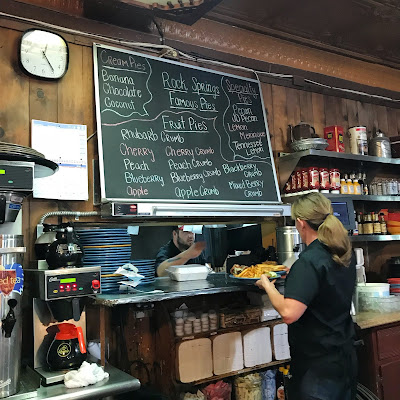 Cream Pies
Banana
Chocolate
Coconut
Rock Springs
Famous Pies
Fruit Pies
Rhubarb Crumb
Cherry Cherry Crumb
Peach Peach Crumb
Blueberry Blueberry Crumb
Apple Apple Crumb
Specialty
Pies
Pecan
Jd Pecan
Lemon
Meringue
Tennessee
Lemon
Blackberry
Crumb
Mixed Berry
Crumb